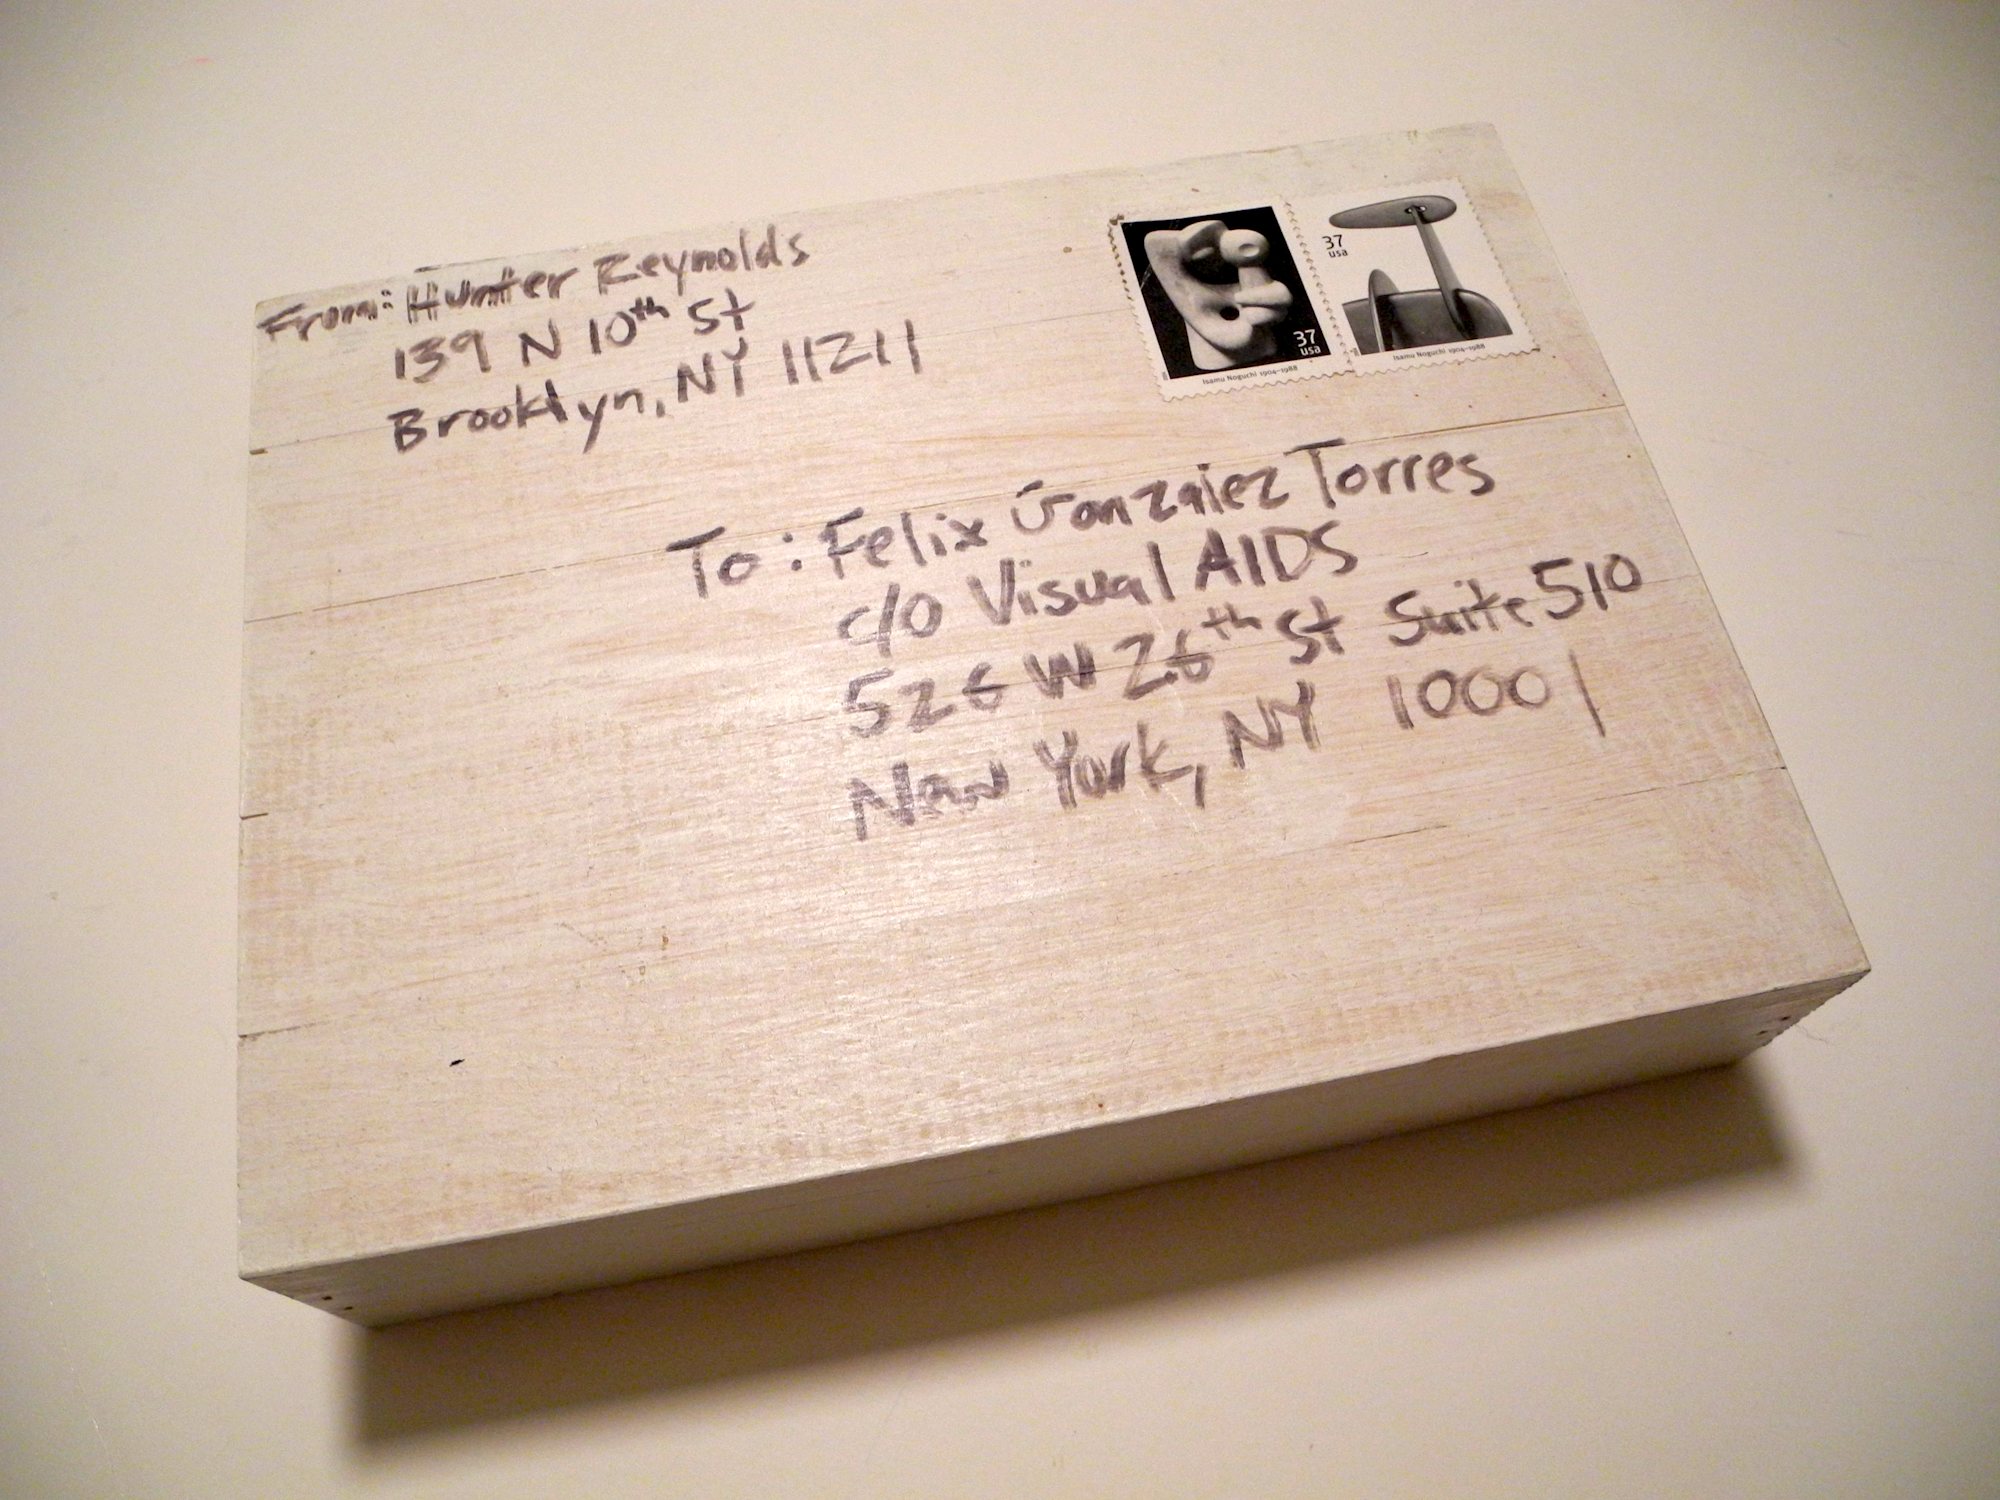 From: Hunter Reynolds
139 N 10th St
Brooklyn, NY 11211
37
usa
Isamu Noguchi 1904–1988
37
usa
Isamu Noguchi 1904–1988
To: Felix Gonzalez Torres
c/o Visual AIDS
526 W 26th St Suite 510
New York, NY 10001